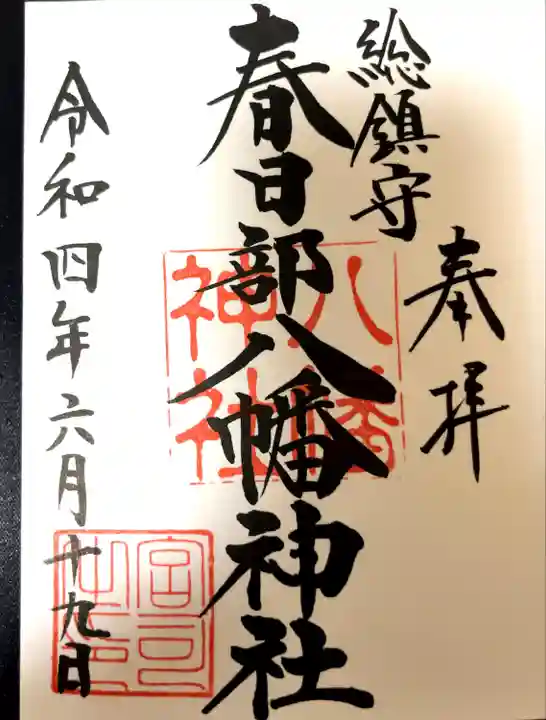 奉拝
総鎮守
春日部八幡神社
令和四年六月十九日
八幡
神社
宮司
之印